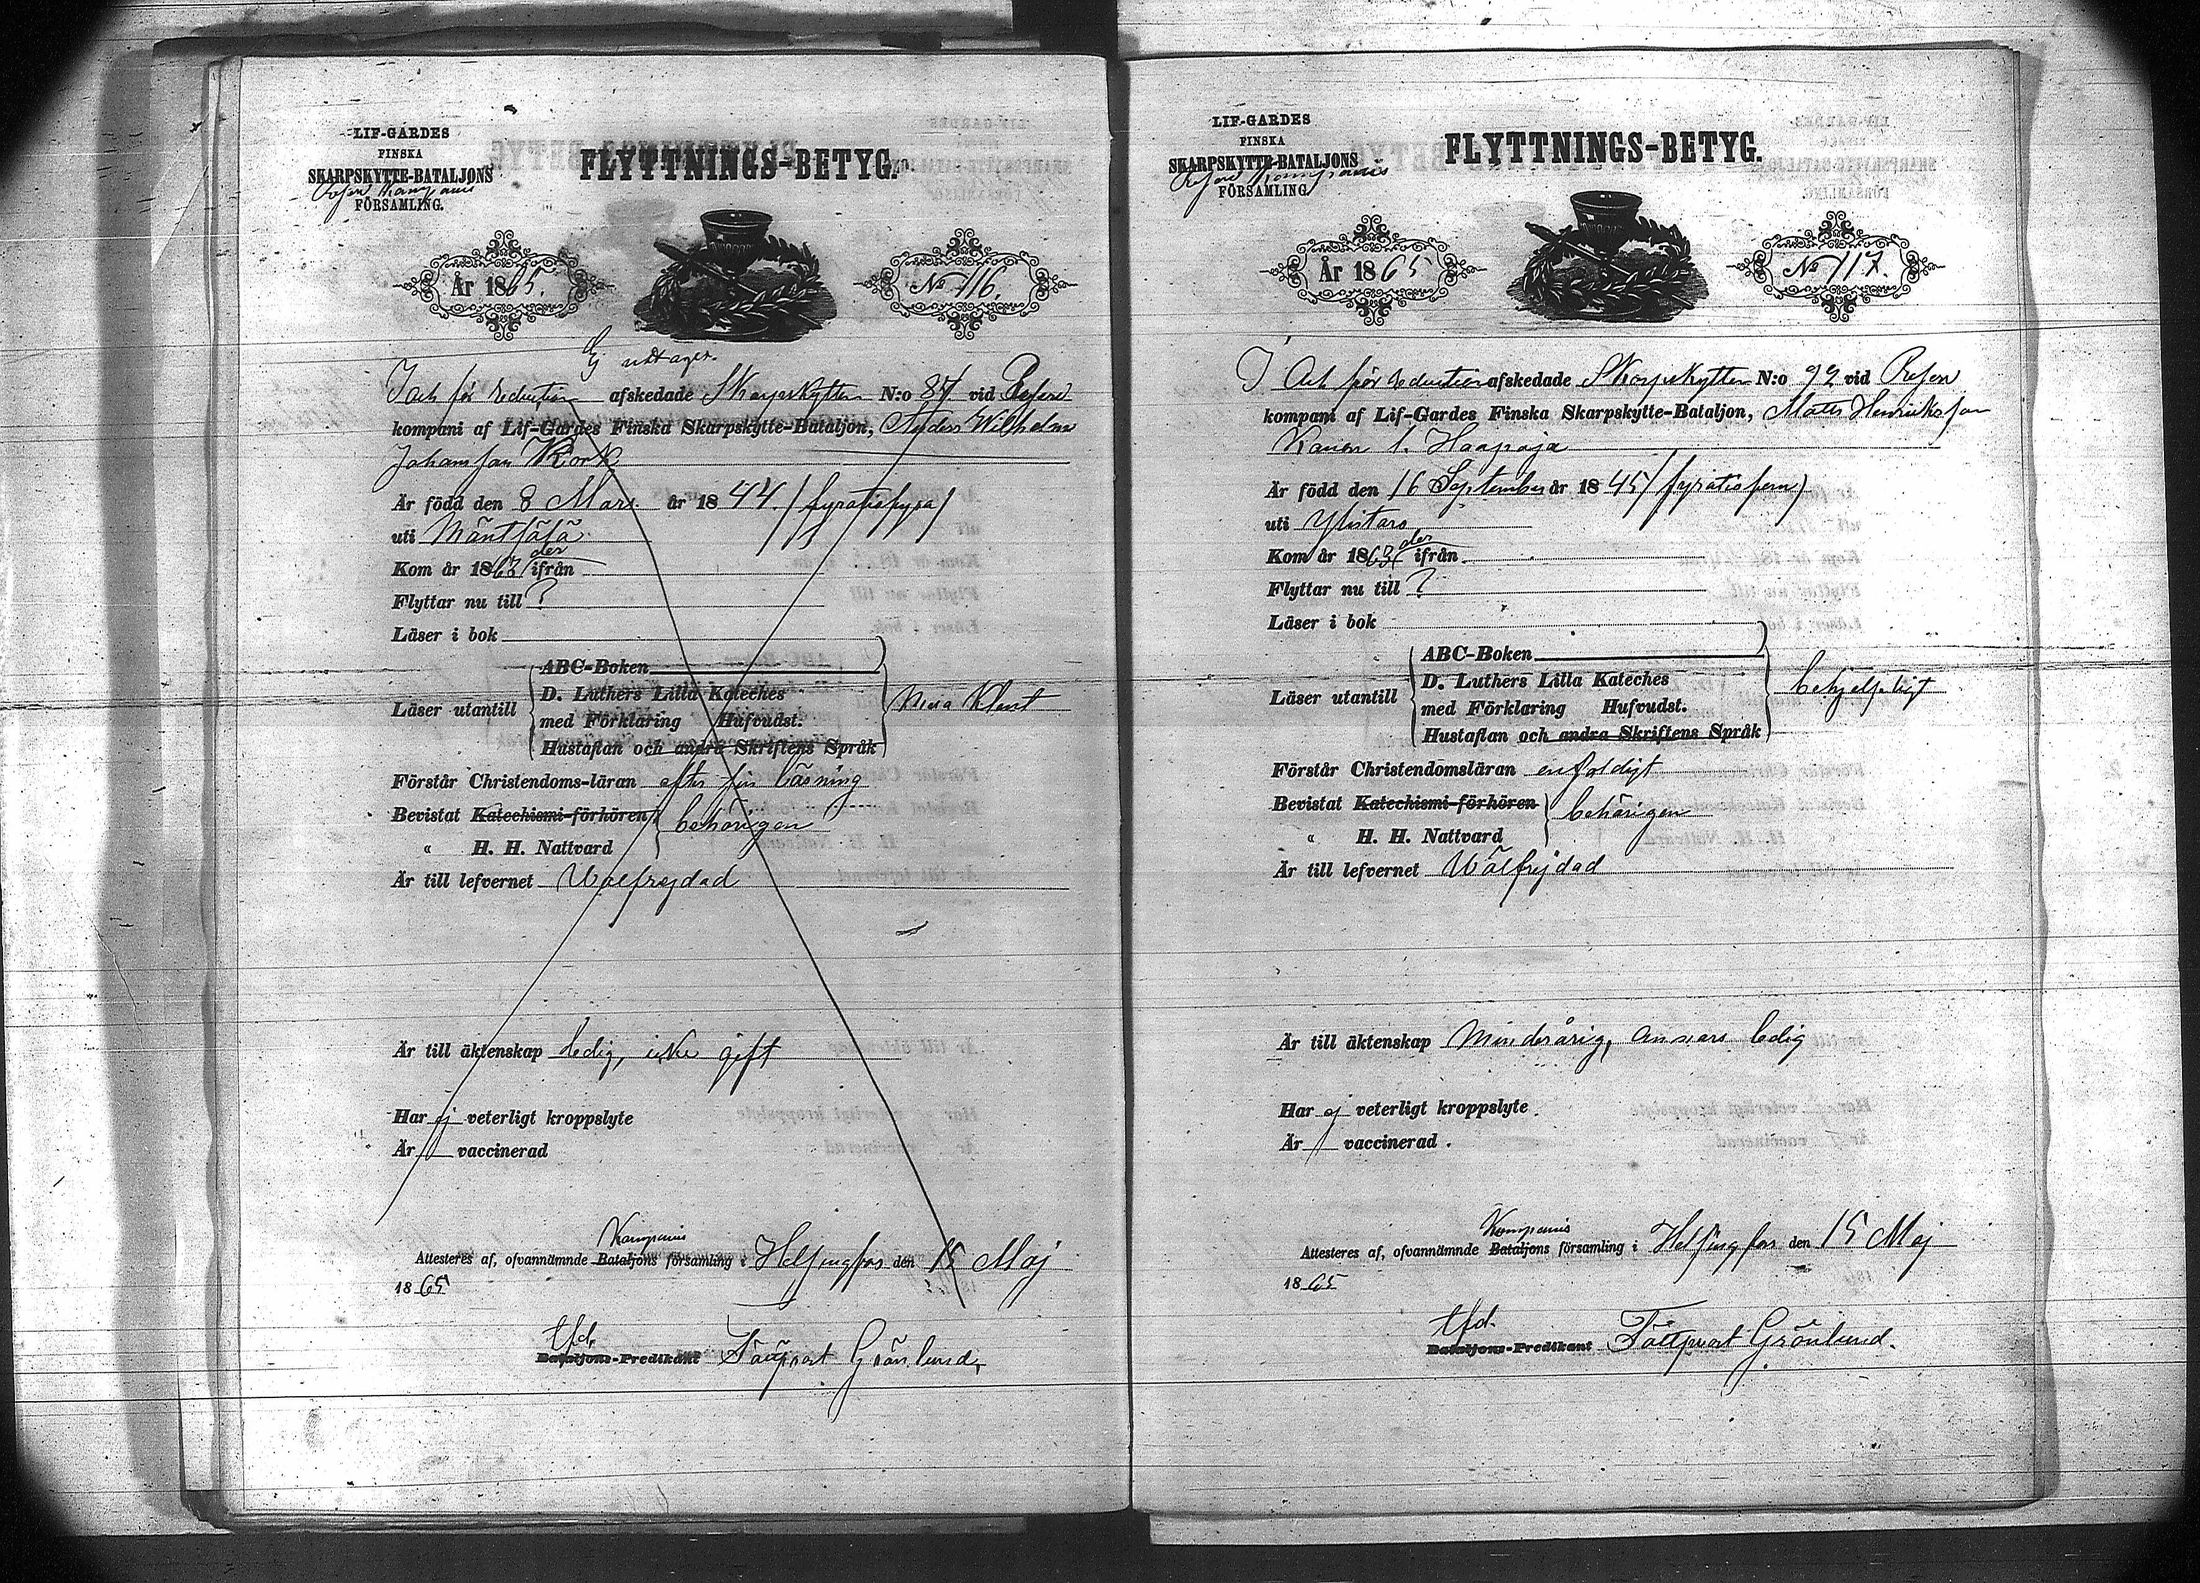 LIF-GARDES
FINSKA
SKARPSKYTTE-BATALJONS
Reserv Kompanis
FÖRSAMLING.
FLYTTNINGS-BETYG.
År 1865.
No 116.
Ej uttagen.
I och för reduction afskedade Skarpskytten N:o 87 vid Reserv
kompani af Lif-Gardes Finska Skarpskytte-Bataljon, Anders Wilhelm
Johansson Kork
Är född den 8 Mars år 1844. (fyratiofyra)
uti Mäntsälä
der
Kom år 1863 ifrån
Flyttar nu till ?
Läser i bok
ABC-Boken
Läser utantill D. Luthers Lilla Kateches
med Förklaring Hufvudst.
Hustaflan och andra Skriftens Språk
Förstår Christendoms-läran efter sin läsning
Bevistat Katechismi-förhören behörigen
" H. H. Nattvard
Är till lefvernet Wälfrejdad
Är till äktenskap ledig, icke gift
Har ej veterligt kroppslyte
Är vaccinerad
Kompanis
Attesteres af, ofvannämnde Bataljons församling i Helsingfors den 15 Maj
1865
tfd.
Bataljons-Predikant Fältprost Grönlund.
LIF-GARDES
FINSKA
SKARPSKYTTE-BATALJONS
Reserv Kompanis
FÖRSAMLING.
FLYTTNINGS-BETYG.
År 1865
No 117.
I och för reduction afskedade Skarpskytten N:o 92 vid Reserv
kompani af Lif-Gardes Finska Skarpskytte-Bataljon, Matts Henriksson
Haapoja
Är född den 16 September år 1845 (fyratiofem)
uti Ylistaro
der
Kom år 1863 ifrån
Flyttar nu till ?
Läser i bok
ABC-Boken
Läser utantill D. Luthers Lilla Kateches behjelpligt
med Förklaring Hufvudst.
Hustaflan och andra Skriftens Språk
Förstår Christendomsläran enfaldigt
Bevistat Katechismi-förhören behörigen
" H. H. Nattvard
Är till lefvernet Wälfrejdad
Är till äktenskap Minderårig, annars ledig
Har ej veterligt kroppslyte.
Är vaccinerad.
Kompanis
Attesteres af, ofvannämnde Bataljons församling i Helsingfors den 15 Maj
1865
tfd.
Bataljons-Predikant Fältprost Grönlund.